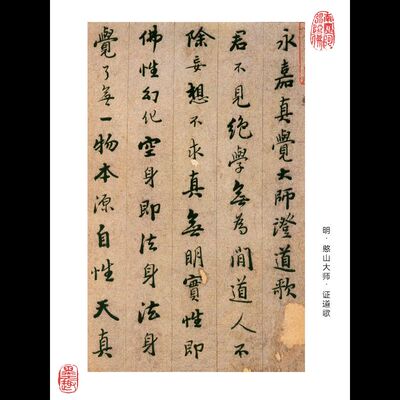 永嘉真覺大師證道歌
君不見絕學無為閒道人不
除妄想不求真無明實性即
佛性幻化空身即法身法身
覺了無一物本源自性天真
明·憨山大师·证道歌